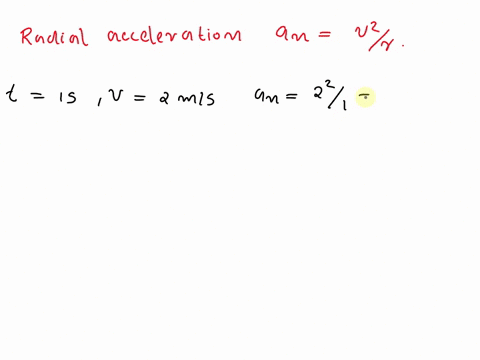 Radial acceleration an = v²/r.
t = 1s , v = 2 m/s an = 2²/1 =